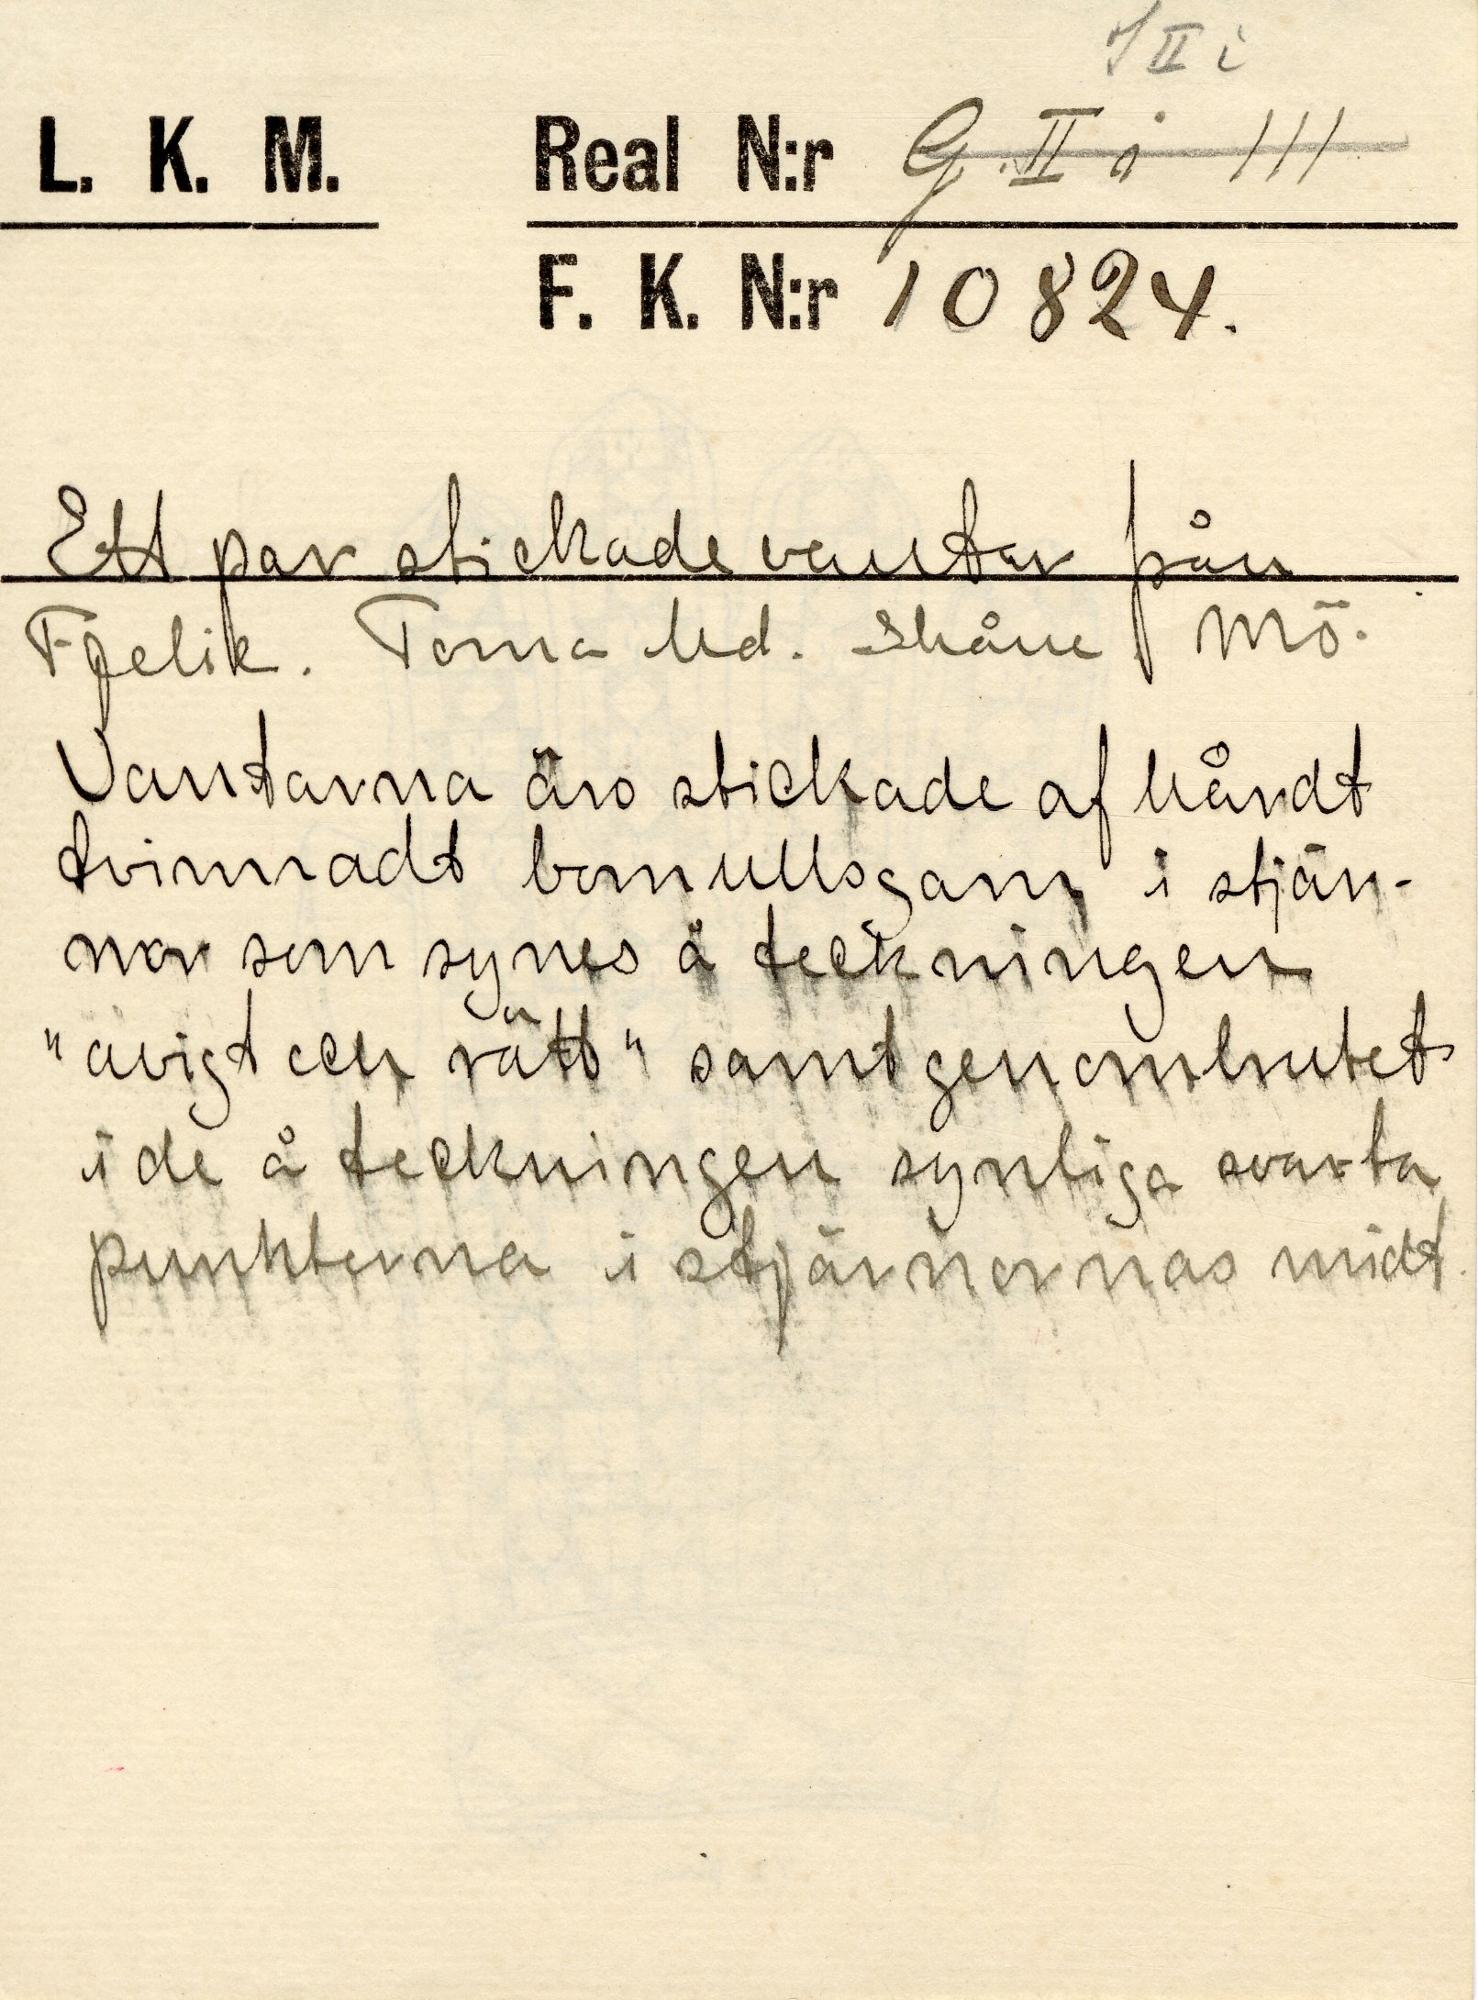 II i
L. K. M. Real N:r G. II i 111
F. K. N:r 10824.
Ett par stickade vantar från
Fjelie. Torna Hd. Skåne Mö.
Vantarna äro stickade af hårdt
tvinnadt bomullsgarn i stjär-
nor som synes å teckningen
"avigt och rätt" samt genombrutet
i de å teckningen synliga svarta
punkterna i stjärnornas midt.